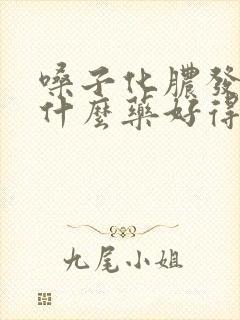 嗓子化膿發
什麼藥好得
九尾小姐